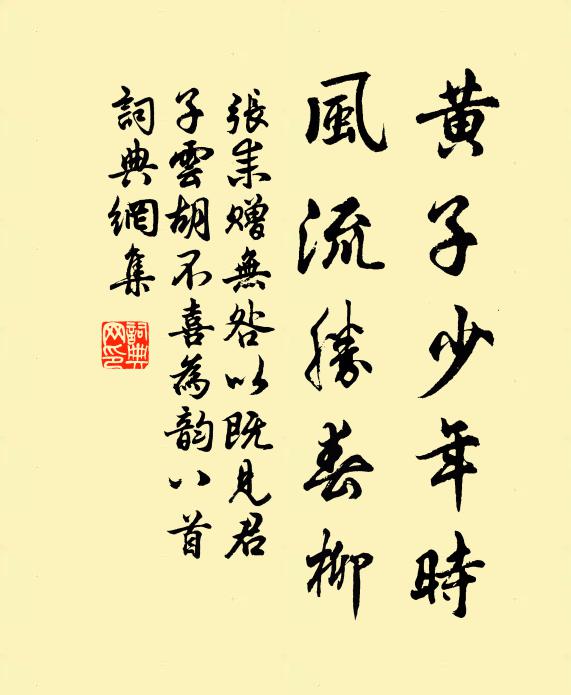 黃子少年時
風流勝春柳
張耒贈無咎以既見君
子雲胡不喜為韵八首
詞典網集
詞典網印